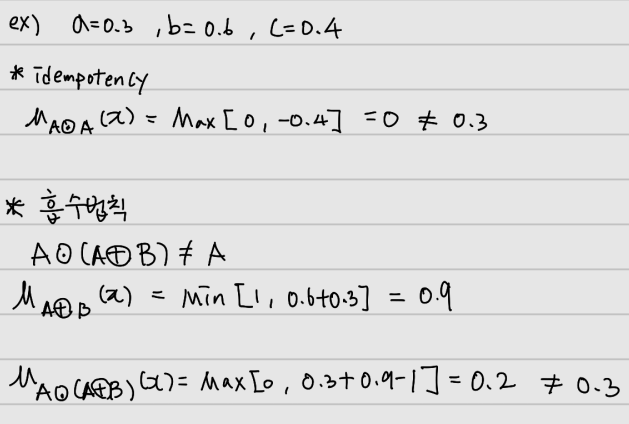 ex) a=0.3 , b=0.6 , C=0.4
* idempotency
μ_{A⊙A}(x) = Max[0, -0.4] = 0 ≠ 0.3
* 흡수법칙
A⊙(A⊕B) ≠ A
μ_{A⊕B}(x) = Min[1, 0.6+0.3] = 0.9
μ_{A⊙(A⊕B)}(x) = Max[0, 0.3+0.9-1] = 0.2 ≠ 0.3